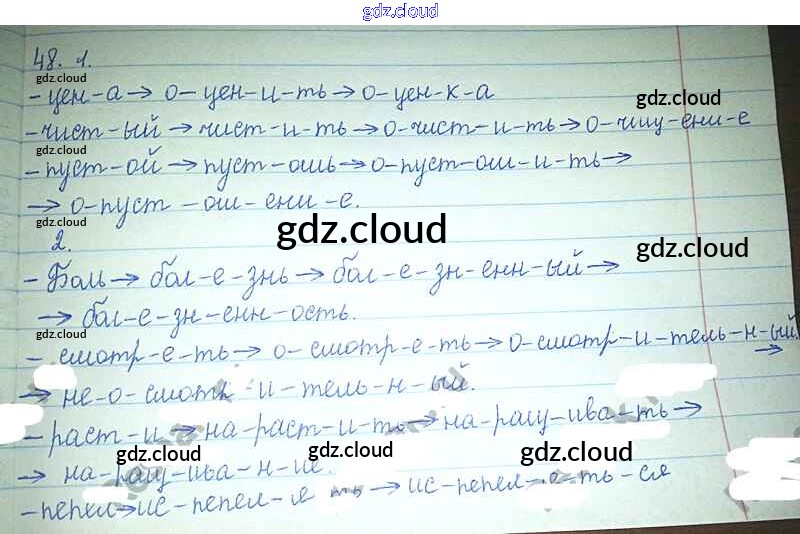 gdz.cloud
48. 1.
gdz.cloud
-цен-а→ о-цен-и-ть→о-цен-к-а
gdz.cloud
-чист-ый→чист-и-ть→о-чист-и-ть→о-чищ-ени-е
gdz.cloud
-пуст-ой→пуст-ошь→о-пуст-ош-и-ть→
→ о-пуст-ош-ени-е.
gdz.cloud
2. gdz.cloud
gdz.cloud
-Боль→бол-е-знь→бол-е-зн-енн-ый→
→ бол-е-зн-енн-ость.
gdz.cloud
- смотр-е-ть→ о-смотр-е-ть→о-смотр-и-тель-н-ый
→
→ не-о-смотр-и-тель-н-ый.
-раст-и→на-раст-и-ть→на-ращ-ива-ть→
gdz.cloud gdz.cloud gdz.cloud
→ на-ращ-ива-н-ие.
-пепел→ис-пепел- ть→ис-пепел- -ть-ся